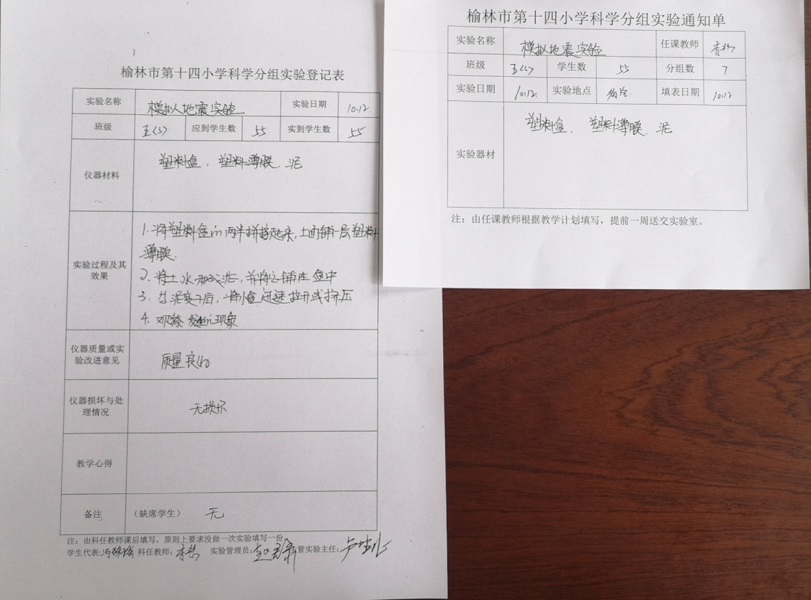 榆林市第十四小学科学分组实验登记表
实验名称 模拟地震实验 实验日期 10.12
班级 五(5) 应到学生数 55 实到学生数 55
仪器材料 塑料盒、塑料薄膜 泥
实验过程及其效果
1. 将塑料盒的两半拼接起来,上面铺一层塑料
薄膜.
2. 将土水和成泥,并将之铺在盒中
3. 当泥变干后,将小盒迅速拉开或挤压
4. 观察发生的现象
仪器质量或实验改进意见 质量良好
仪器损坏与处理情况 无损坏
教学心得
备注 (缺席学生) 无
注:由科任教师课后填写,原则上要求没做一次实验填写一份
学生代表: 科任教师: 实验管理员: 管实验主任:
榆林市第十四小学科学分组实验通知单
实验名称 模拟地震实验 任课教师
班级 五(5) 学生数 55 分组数 7
实验日期 10.12 实验地点 填表日期 10.12
实验器材 塑料盒、塑料薄膜 泥
注:由任课教师根据教学计划填写,提前一周送交实验室。